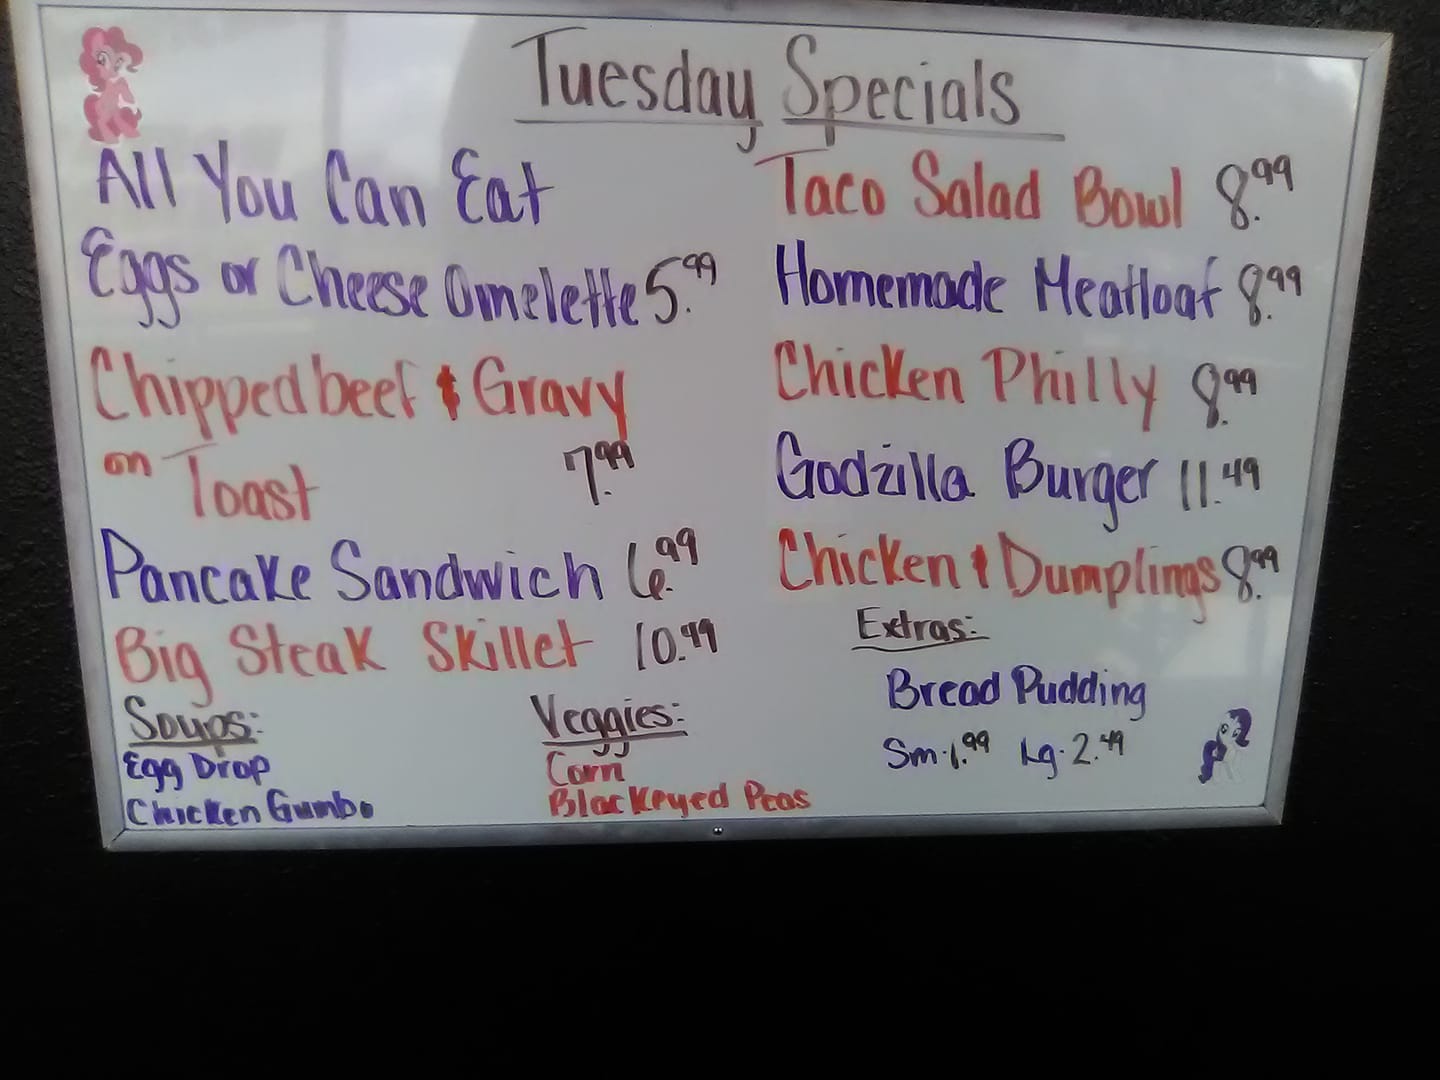 Tuesday Specials
All You Can Eat
Eggs or Cheese Omelette 5.99
Chipped beef & Gravy
on Toast 7.99
Pancake Sandwich 6.99
Big Steak Skillet 10.99
Soups:
Egg Drop
Chicken Gumbo
Veggies:
Corn
Blackeyed Peas
Taco Salad Bowl 8.99
Homemade Meatloaf 8.99
Chicken Philly 8.99
Godzilla Burger 11.49
Chicken & Dumplings 8.99
Extras:
Bread Pudding
Sm. 1.99 Lg. 2.49